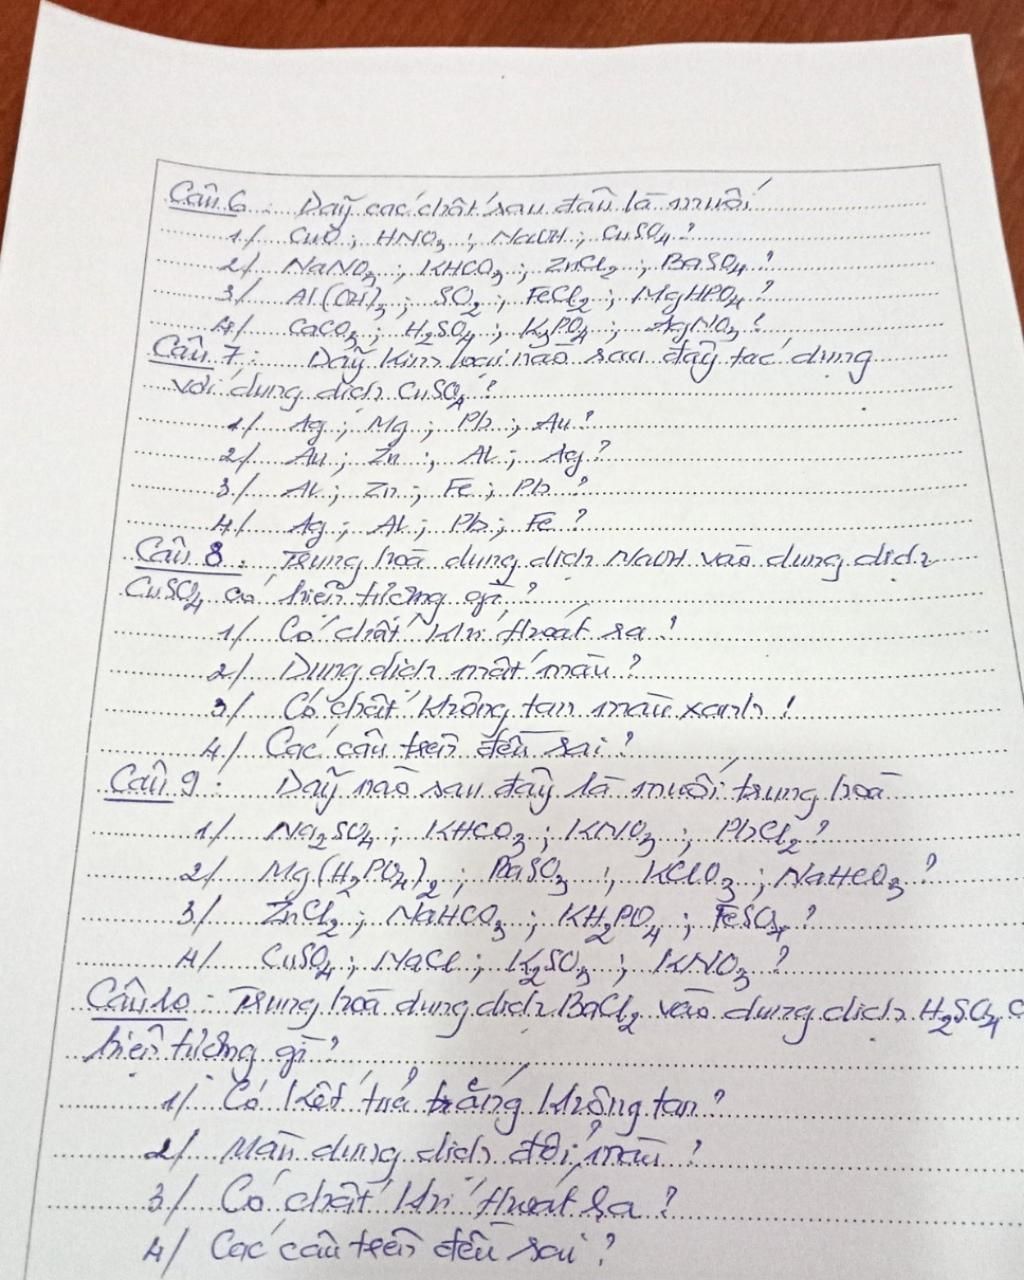 Câu 6 : Dãy các chất sau đâu là muối
1/ CuO ; HNO3 ; NaOH ; CuSO4 ?
2/ NaNO3 ; KHCO3 ; ZnCl2 ; BaSO4 ?
3/ Al(OH)3 ; SO2 ; FeCl2 ; MgHPO4 ?
4/ CaCO3 ; H2SO4 ; K3PO4 ; AgNO3 ?
Câu 7 : Dãy kim loại nào sau đây tác dụng
với dung dịch CuSO4 ?
1/ Ag ; Mg ; Pb ; Au ?
2/ Au ; Zn ; Al ; Ag ?
3/ Al ; Zn ; Fe ; Pb ?
4/ Ag ; Al ; Pb ; Fe ?
Câu 8 : Trung hoà dung dịch NaOH vào dung dịch
CuSO4 có hiện tượng gì ?
1/ Có chất khí thoát ra ?
2/ Dung dịch mất màu ?
3/ Có chất không tan màu xanh !
4/ Các câu trên đều sai ?
Câu 9 : Dãy nào sau đây là muối trung hoà
1/ Na2SO4 ; KHCO3 ; KNO3 ; PbCl2 ?
2/ Mg(H2PO4)2 ; BaSO3 ; KClO3 ; NaHCO3 ?
3/ ZnCl2 ; NaHCO3 ; KH2PO4 ; FeSO4 ?
4/ CuSO4 ; NaCl ; K2SO3 ; KNO3 ?
Câu 10 : Trung hoà dung dịch BaCl2 vào dung dịch H2SO4
hiện tượng gì ?
1/ Có kết tủa trắng không tan ?
2/ Màu dung dịch đổi màu ?
3/ Có chất khí thoát ra ?
4/ Các câu trên đều sai ?